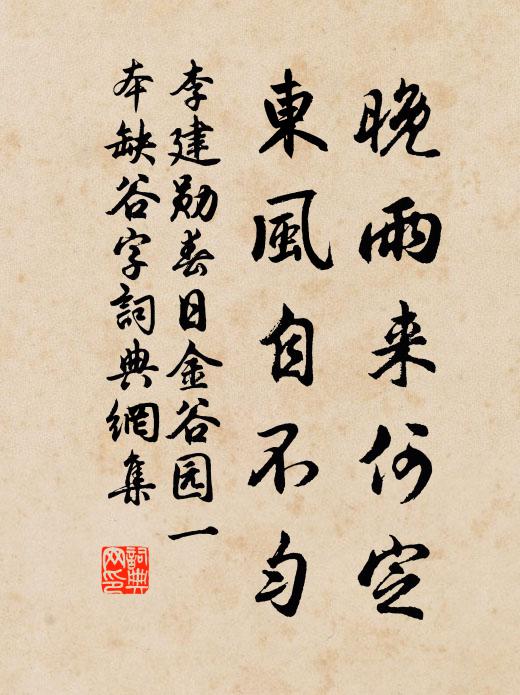 晚雨来何定
東風自不匀
李建勋春日金谷园一
本缺谷字詞典網集
詞典
网印